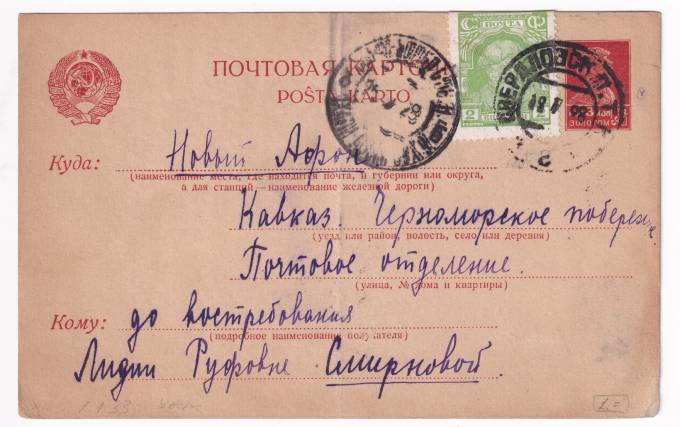 ПОЧТОВАЯ КАРТО
POŜTA KARTO
ПОЧТА
2
СВЕРДЛОВСК
28
ЗОЛОТОМ
Куда: Новый Афон
(наименование места, где находится почта, и губернии или округа,
а для станций—наименование железной дороги)
Кавказ. Черноморское побережье
(уезд или район, волость, село или деревня)
Почтовое отделение.
(улица, № дома и квартиры)
до востребования
Кому:
(подробное наименование получателя)
Лидии Руфовне Смирновой.